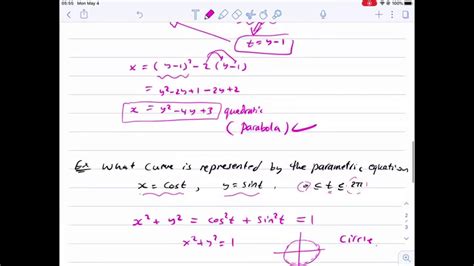 05:55 Mon May 4
100%
t = y-1
x = (y-1)² - 2(y-1)
= y²-2y+1-2y+2
x = y²-4y+3 quadratic
(Parabola) ✓
Ex What curve is represented by the parametric equation
x = cost , y = sint , 0 ≤ t ≤ 2π
x² + y² = cos²t + sin²t = 1
x² + y² = 1 Circle